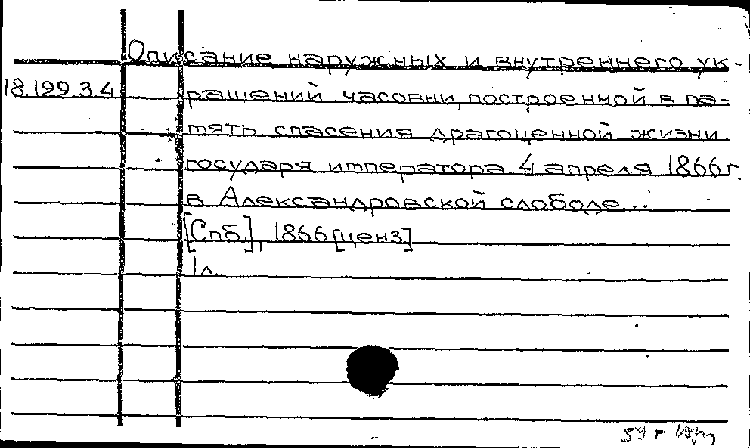 Описание наружных и внутреннего ук-
18.199.3.4 рашений часовни, построенной в па-
мять спасения драгоценной жизни
государя императора 4 апреля 1866 г.
в Александровской слободе...
[Спб.], 1866 [ценз]
1 л.